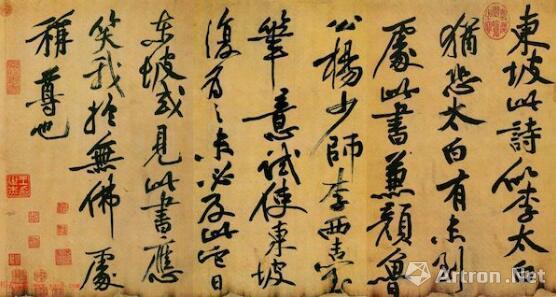 東坡此詩似李太白
猶恐太白有未到
處此書兼顏魯
公楊少師李西臺
筆意試使東坡
復為之未必及此它日
東坡或見此書應
笑我於無佛處
稱尊也
Artron.Net